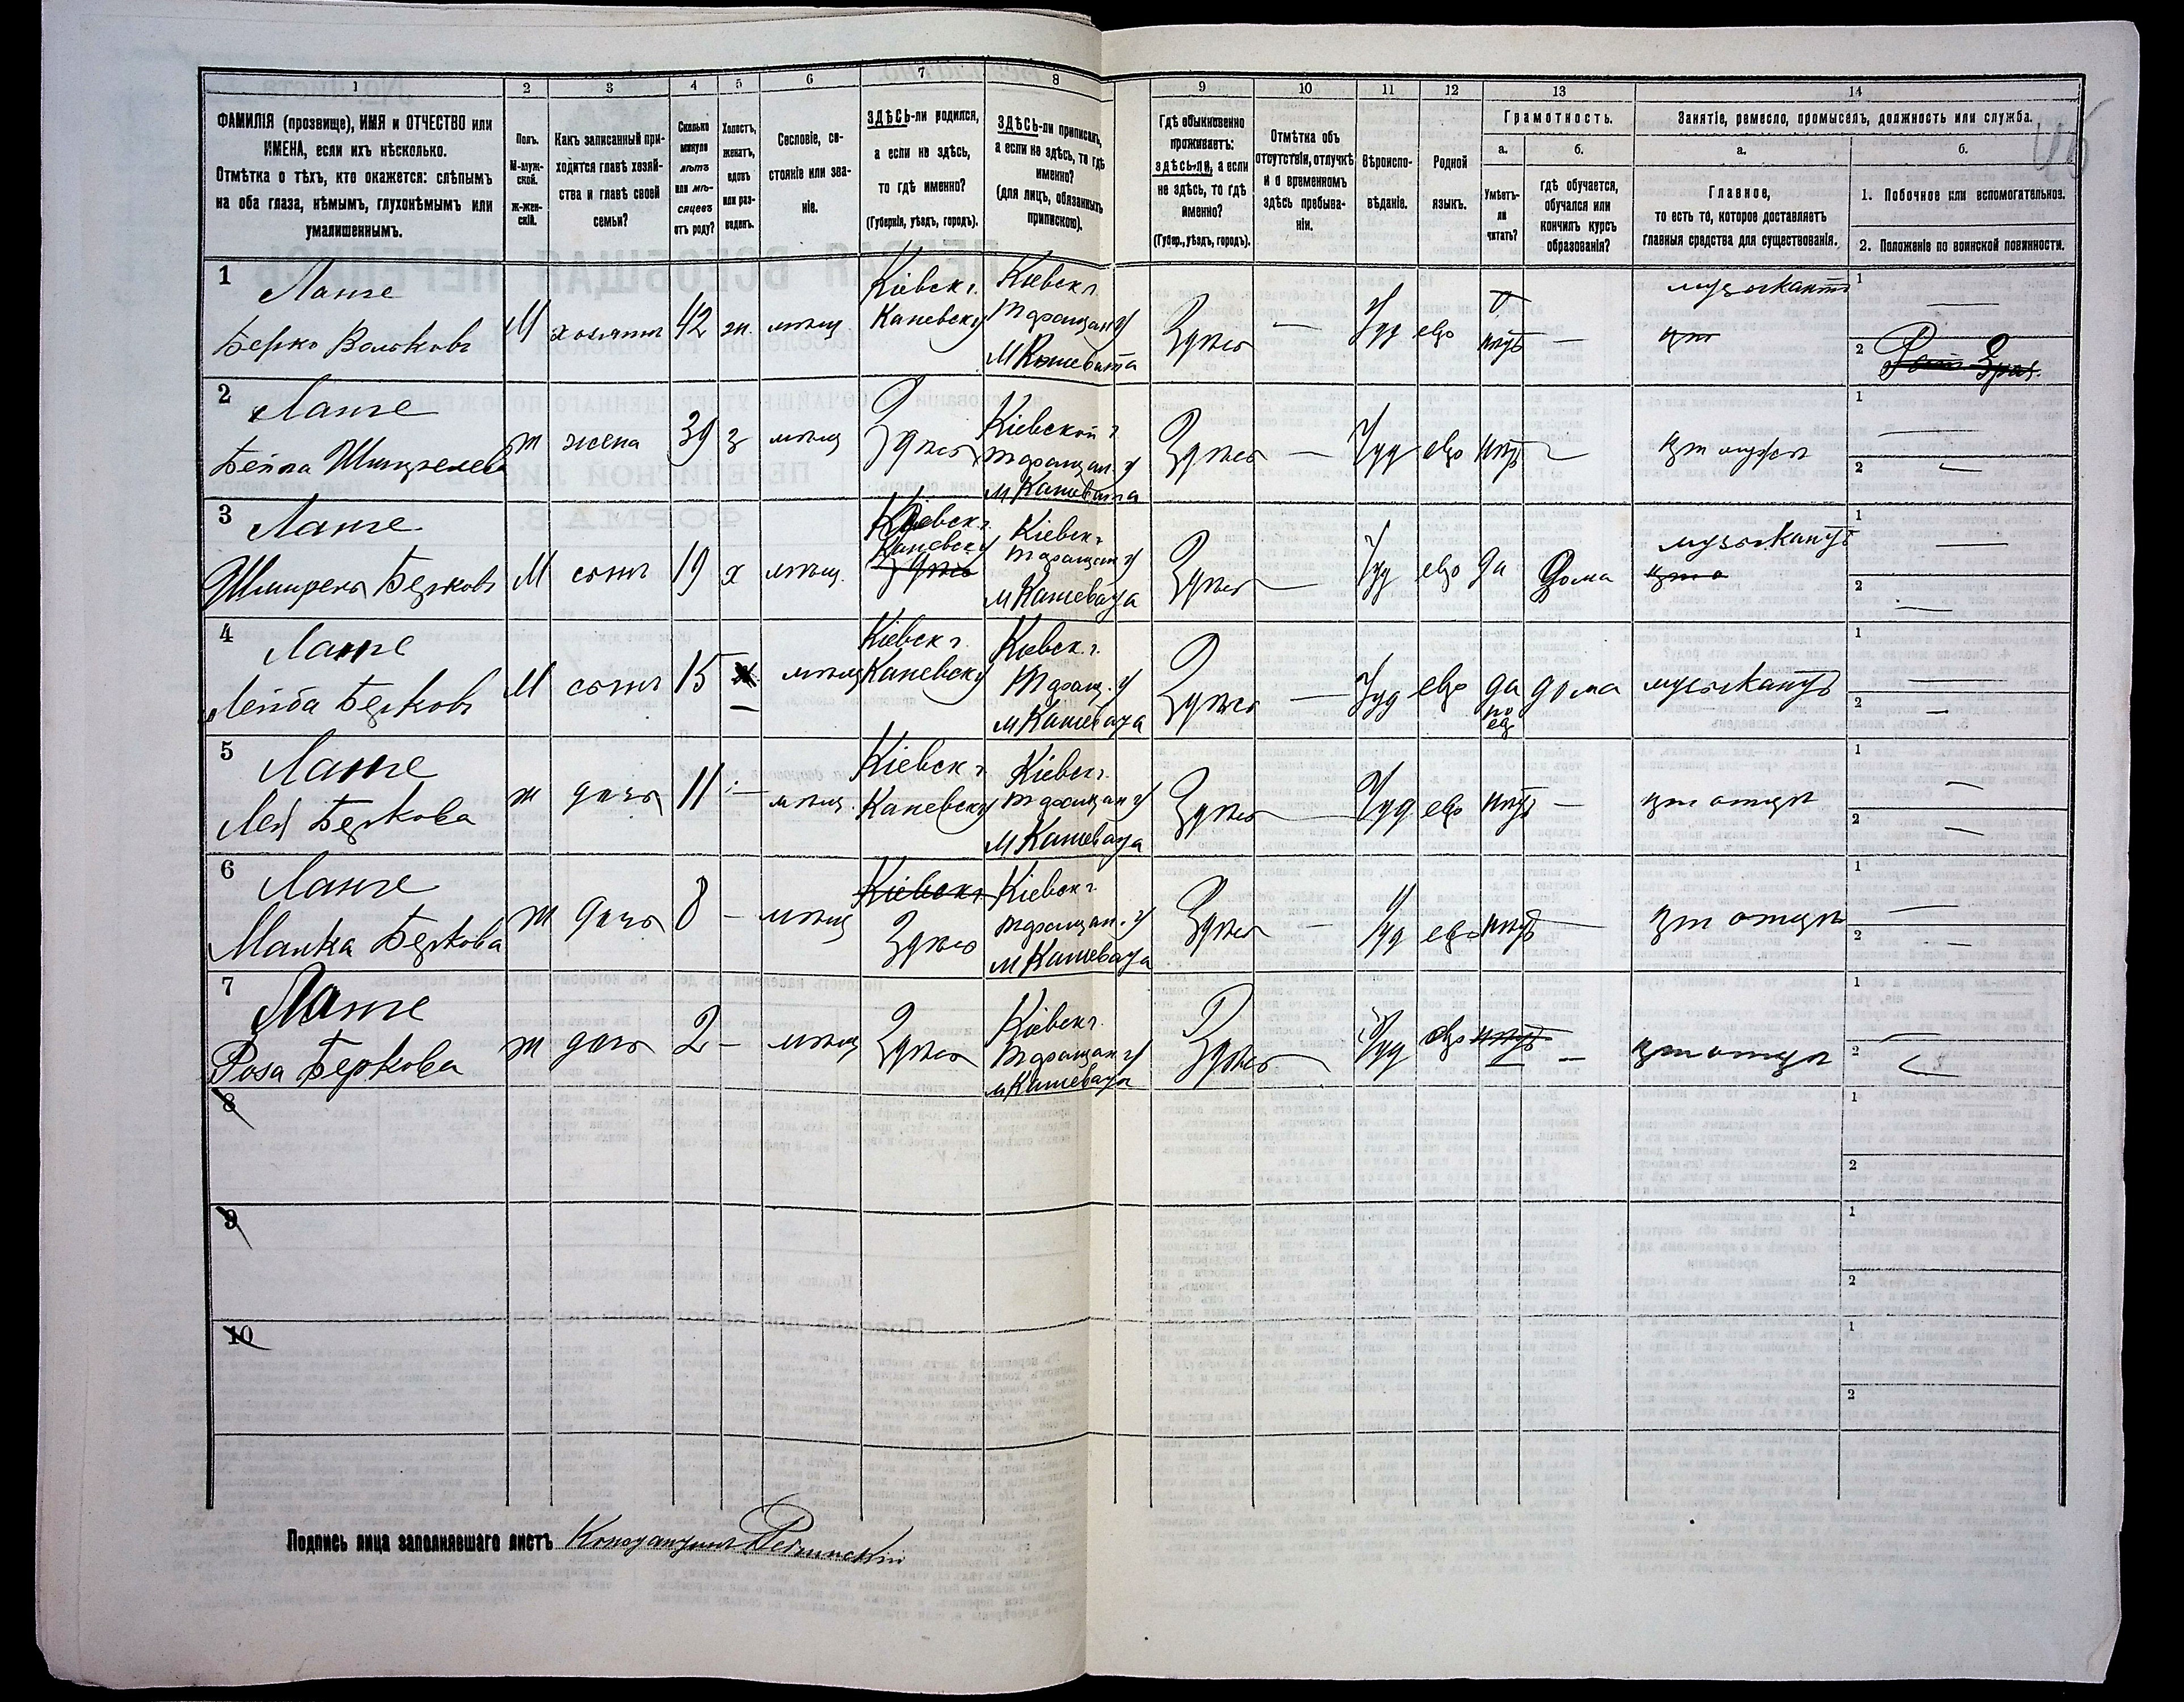 1 2 3 4 5 6 7 8 9 10 11 12 13 14
ФАМИЛІЯ (прозвище), ИМЯ и ОТЧЕСТВО или
ИМЕНА, если ихъ нѣсколько.
Отмѣтка о тѣхъ, кто окажется: слѣпымъ
на оба глаза, нѣмымъ, глухонѣмымъ или
умалишеннымъ.
Полъ.
М-муж-
ской.
ж-жен-
скій.
Какъ записанный при-
ходится главѣ хозяй-
ства и главѣ своей
семьи?
Сколько
минуло
лѣтъ
или мѣ-
сяцевъ
отъ роду?
Холостъ,
женатъ,
вдовъ
или раз-
веденъ.
Сословіе, со-
стояніе или зва-
ніе.
ЗДѢСЬ-ли родился,
а если не здѣсь,
то гдѣ именно?
(Губернія, уѣздъ, городъ).
ЗДѢСЬ-ли приписанъ,
а если не здѣсь, то гдѣ
именно?
(для лицъ, обязанныхъ
припискою).
Гдѣ обыкновенно
проживаетъ:
здѣсь-ли, а если
не здѣсь, то гдѣ
именно?
(Губер., уѣздъ, городъ).
Отмѣтка объ
отсутствіи, отлучкѣ
и о временномъ
здѣсь пребыва-
ніи.
Вѣроиспо-
вѣданіе.
Родной
языкъ.
Грамотность.
а.
Умѣетъ-
ли
читать?
б.
гдѣ обучается,
обучался или
кончилъ курсъ
образованія?
Занятіе, ремесло, промыселъ, должность или служба.
а.
Главное,
то есть то, которое доставляетъ
главныя средства для существованія.
б.
1. Побочное или вспомогательное.
2. Положеніе по воинской повинности.
1
Ланге
Берко Вольковъ
М хозяинъ 42 ж. мѣщ.
Кіевск г.
Каневску
Кіевск г.
Таращан у
М Кошевата
Здѣсь — Іуд евр нѣтъ —
музыкантъ
1 —
2
2
Ланге
Бейла Шмирелева
ж жена 39 з мѣщ Здѣсь
Кіевской г
Таращан. у
М Кашевата
Здѣсь — Іуд евр нѣтъ — при мужѣ
1 —
2 —
3
Ланге
Шмирель Берковъ
М сынъ 19 х мѣщ.
Кіевск г.
Каневску
Здѣсь
Кіевск г
Таращан у
М Кашевата
Здѣсь — Іуд евр да Дома
музыкантъ
1 —
2 —
4
Ланге
Лейба Берковъ
М сынъ 15 — мѣщ
Кіевск г.
Каневску
Кіевск г.
Таращ. у
М Кашевата
Здѣсь — Іуд евр да дома музыкантъ
по
ев
1 —
2 —
5
Ланге
Лея Беркова
ж дочь 11 — мѣщ.
Кіевск г
Каневску
Кіевск г.
Таращан у
М Кашевата
Здѣсь — Іуд евр нѣтъ — при отцѣ
1 —
2 —
6
Ланге
Малка Беркова
ж дочь 8 — мѣщ
Кіевск г
Здѣсь
Кіевск г
Таращан. у
М Кашевата
Здѣсь — Іуд евр нѣтъ — при отцѣ
1 —
2 —
7
Ланге
Роза Беркова
ж дочь 2 — мѣщ Здѣсь
Кіевск г.
Таращан у
М Кашевата
Здѣсь — Іуд евр нѣтъ — при отцѣ
1 —
2
8
1
2
9
1
2
10
1
2
Подпись лица заполнявшаго листъ